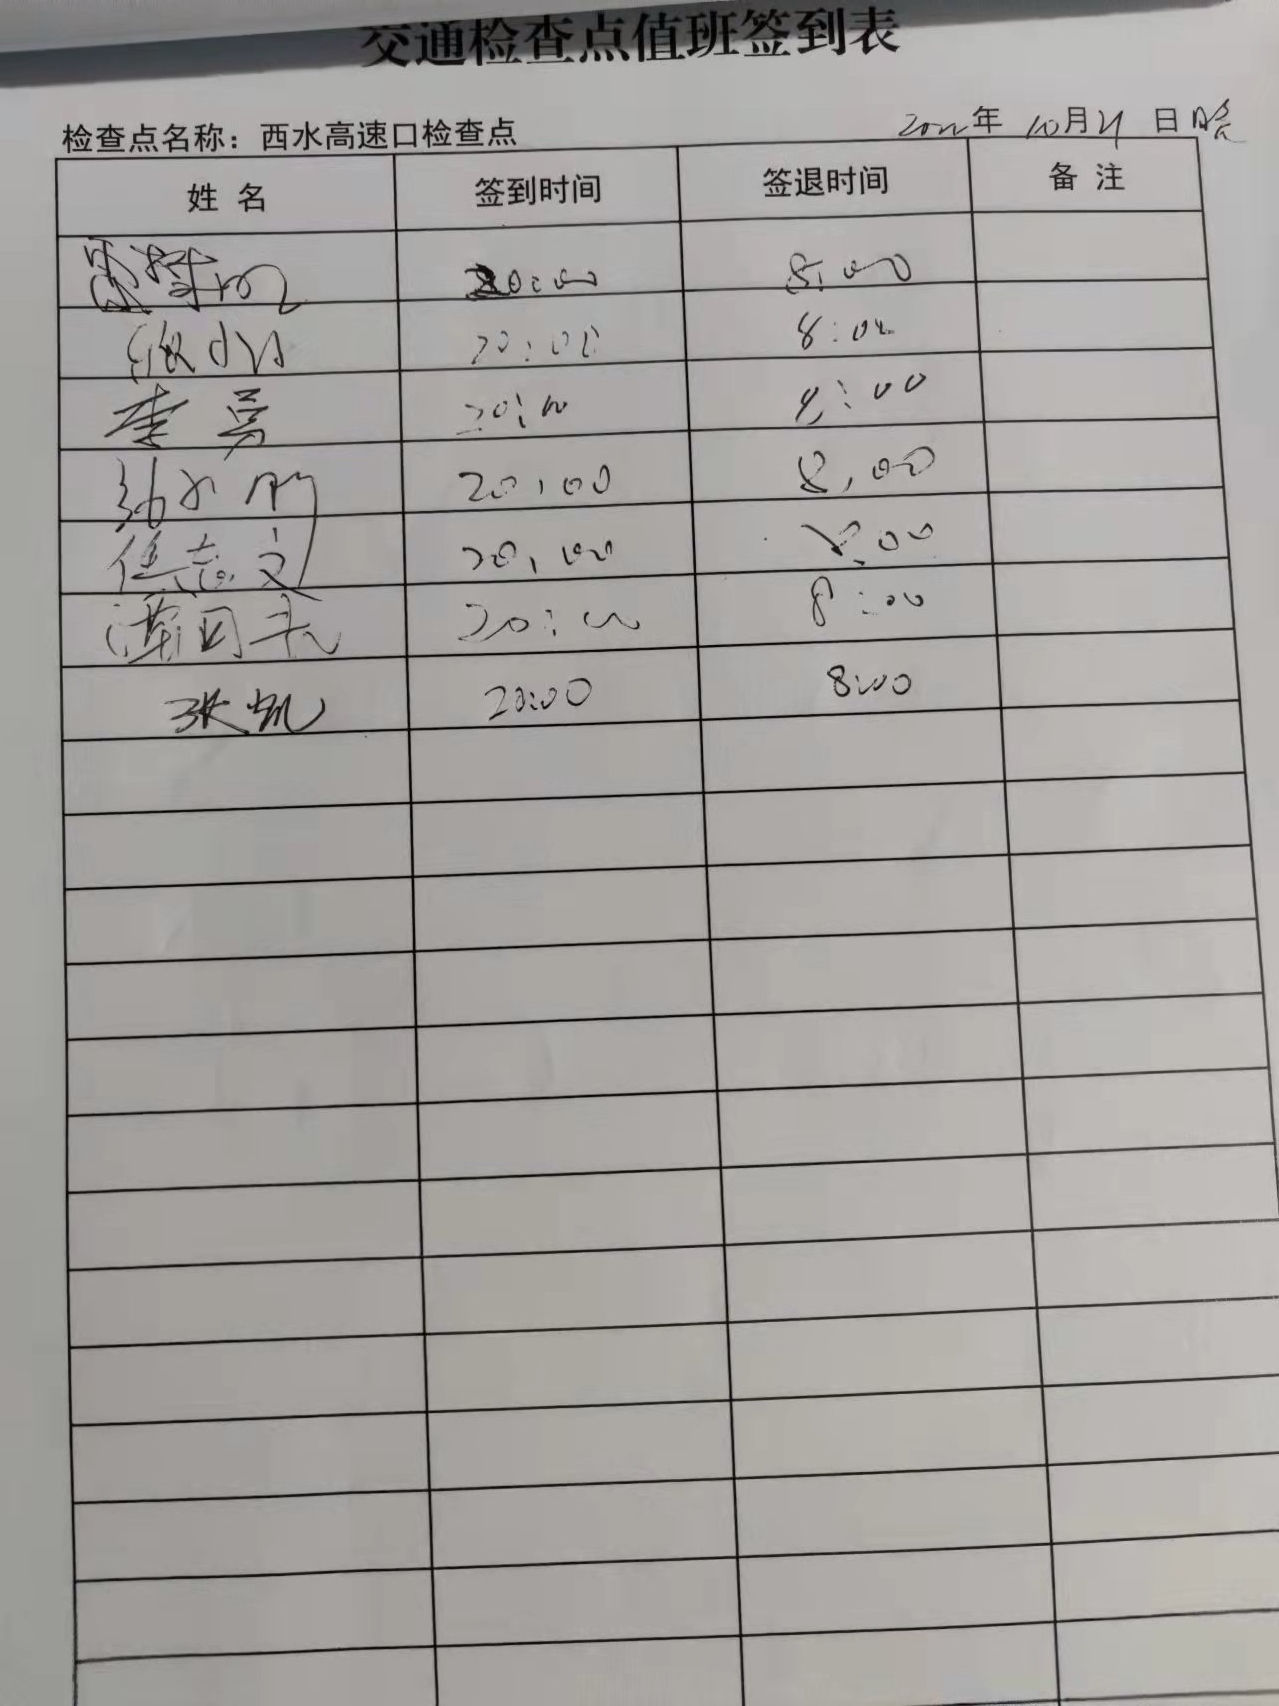 交通检查点值班签到表
检查点名称：西水高速口检查点 2022年 10月21日晚
姓 名 签到时间 签退时间 备 注
20:00 8:00
20:00 8:00
李勇 20:00 8:00
20:00 8:00
任志文 20:00 8:00
谭国 20:00 8:00
张凯 20:00 8:00